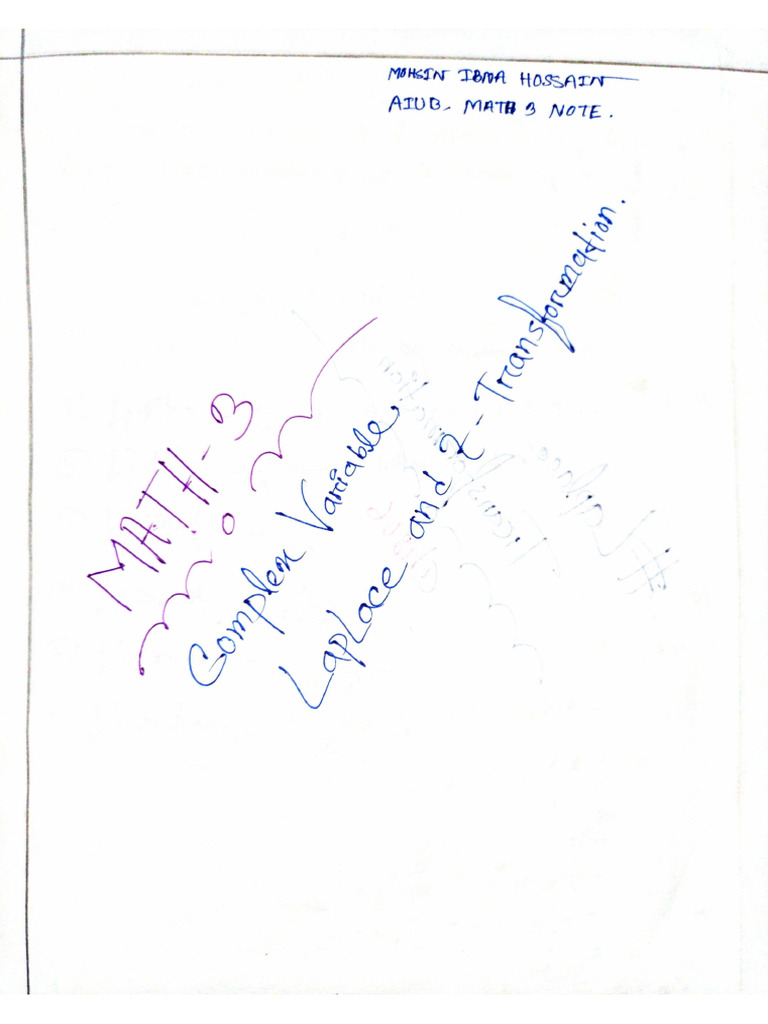 MOHSIN IBNA HOSSAIN
AIUB- MATH 3 NOTE.
MATH-3
Complex Variable,
Laplace and Z-Transformation.
# Laplace
Transformation